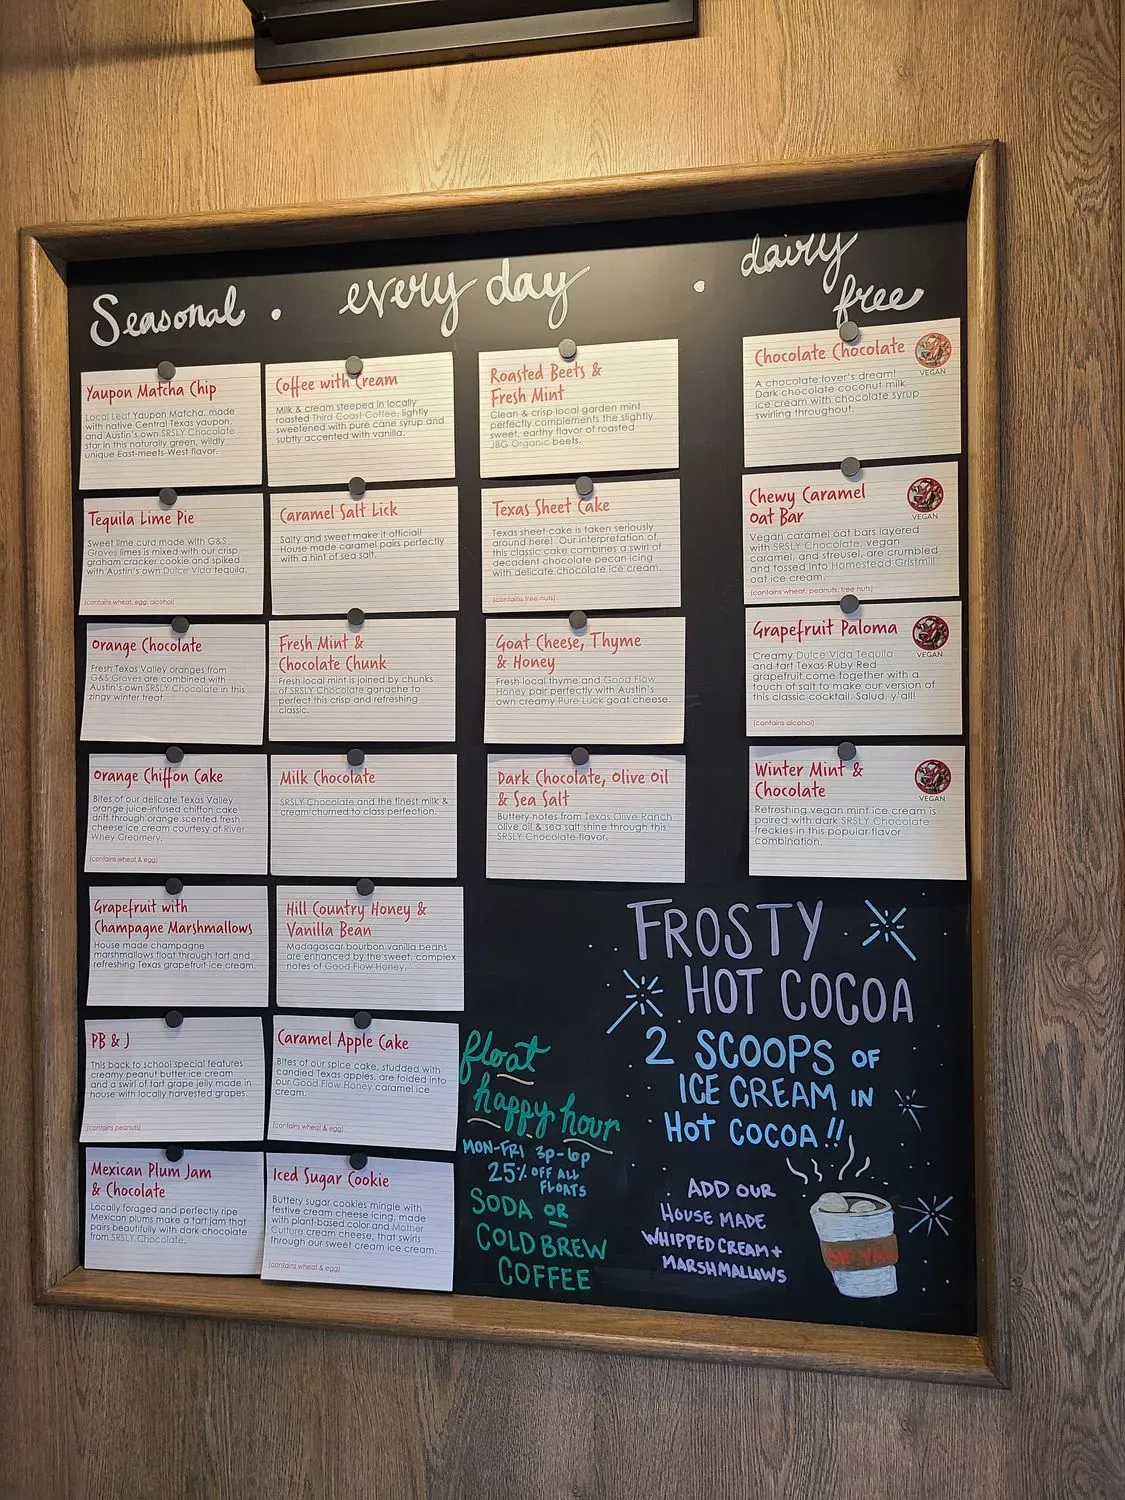 Seasonal . every day . dairy
free
Yaupon Matcha Chip
Local Leaf Yaupon Matcha, made
with native Central Texas yaupon,
and Austin's own SRSLY Chocolate
star in this naturally green, wildly
unique East-meets-West flavor.
Tequila Lime Pie
Sweet lime curd made with G&S
Groves limes is mixed with our crisp
graham cracker cookie and spiked
with Austin's own Dulce Vida tequila.
(contains wheat, egg, alcohol)
Orange Chocolate
Fresh Texas Valley oranges from
G&S Groves are combined with
Austin's own SRSLY Chocolate in this
zingy winter treat.
Orange Chiffon Cake
Bites of our delicate Texas Valley
orange juice-infused chiffon cake
drift through orange scented fresh
cheese ice cream courtesy of River
Whey Creamery.
(contains wheat & egg)
Grapefruit with
Champagne Marshmallows
House made champagne
marshmallows float through tart and
refreshing Texas grapefruit ice cream.
PB & J
This back to school special features
creamy peanut butter ice cream
and a swirl of tart grape jelly made in
house with locally harvested grapes.
(contains peanuts)
Mexican Plum Jam
& Chocolate
Locally foraged and perfectly ripe
Mexican plums make a tart jam that
pairs beautifully with dark chocolate
from SRSLY Chocolate.
Coffee with Cream
Milk & cream steeped in locally
roasted Third Coast Coffee, lightly
sweetened with pure cane syrup and
subtly accented with vanilla.
Caramel Salt Lick
Salty and sweet make it official!
House made caramel pairs perfectly
with a hint of sea salt.
Fresh Mint &
Chocolate Chunk
Fresh local mint is joined by chunks
of SRSLY Chocolate ganache to
perfect this crisp and refreshing
classic.
Milk Chocolate
SRSLY Chocolate and the finest milk &
cream churned to class perfection.
Hill Country Honey &
Vanilla Bean
Madagascar bourbon vanilla beans
are enhanced by the sweet, complex
notes of Good Flow Honey.
Caramel Apple Cake
Bites of our spice cake, studded with
candied Texas apples, are folded into
our Good Flow Honey caramel ice
cream.
(contains wheat & egg)
Iced Sugar Cookie
Buttery sugar cookies mingle with
festive cream cheese icing, made
with plant-based color and Mother
Culture cream cheese, that swirls
through our sweet cream ice cream.
(contains wheat & egg)
Roasted Beets &
Fresh Mint
Clean & crisp local garden mint
perfectly complements the slightly
sweet, earthy flavor of roasted
JBG Organic beets.
Texas Sheet Cake
Texas sheet cake is taken seriously
around here! Our interpretation of
this classic cake combines a swirl of
decadent chocolate pecan icing
with delicate chocolate ice cream.
(contains tree nuts)
Goat Cheese, Thyme
& Honey
Fresh local thyme and Good Flow
Honey pair perfectly with Austin's
own creamy Pure Luck goat cheese.
Dark Chocolate, Olive Oil
& Sea Salt
Buttery notes from Texas Olive Ranch
olive oil & sea salt shine through this
SRSLY Chocolate flavor.
Chocolate Chocolate
VEGAN
A chocolate lover's dream!
Dark chocolate coconut milk
ice cream with chocolate syrup
swirling throughout.
Chewy Caramel
Oat Bar
VEGAN
Vegan caramel oat bars layered
with SRSLY Chocolate, vegan
caramel, and streusel, are crumbled
and tossed into Homestead Gristmill
oat ice cream.
(contains wheat, peanuts, tree nuts)
Grapefruit Paloma
VEGAN
Creamy Dulce Vida Tequila
and tart Texas Ruby Red
grapefruit come together with a
touch of salt to make our version of
this classic cocktail. Salud, y'all!
(contains alcohol)
Winter Mint &
Chocolate
VEGAN
Refreshing vegan mint ice cream is
paired with dark SRSLY Chocolate
freckles in this popular flavor
combination.
float
happy hour
MON-FRI 3p-6p
25% OFF ALL
FLOATS
SODA OR
COLD BREW
COFFEE
FROSTY
HOT COCOA
2 SCOOPS OF
ICE CREAM IN
HOT COCOA!!
ADD OUR
HOUSE MADE
WHIPPED CREAM +
MARSHMALLOWS